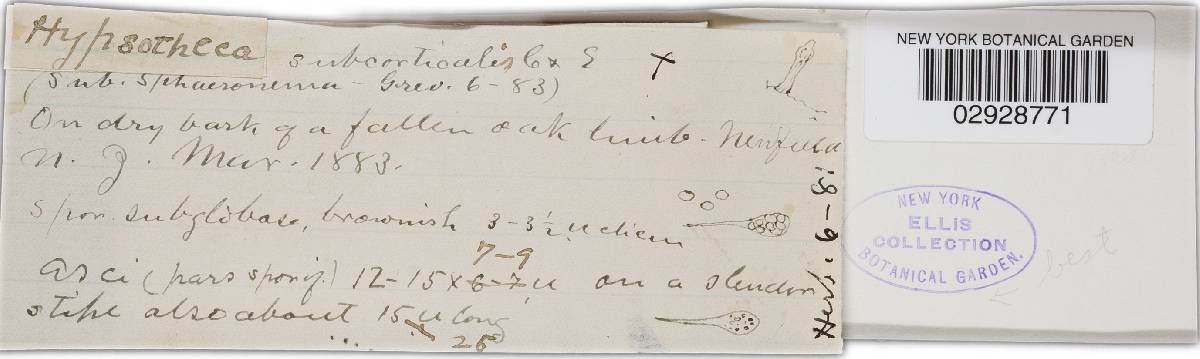 Hypsotheca
subcorticalis C & E X
(Sub. Sphaeronema - Grev. 6-83)
On dry bark of a fallen oak limb. Newfield
N. J. Mar. 1883.
Spor. subglobose, brownish 3-3½ u diam
7-9
Asci (pars sporif.) 12-15 x 6-7 u on a slender
stipe also about 15 u long
25
Herb. 6-81
NEW YORK BOTANICAL GARDEN
02928771
NEW YORK
ELLIS
COLLECTION
BOTANICAL GARDEN.
best